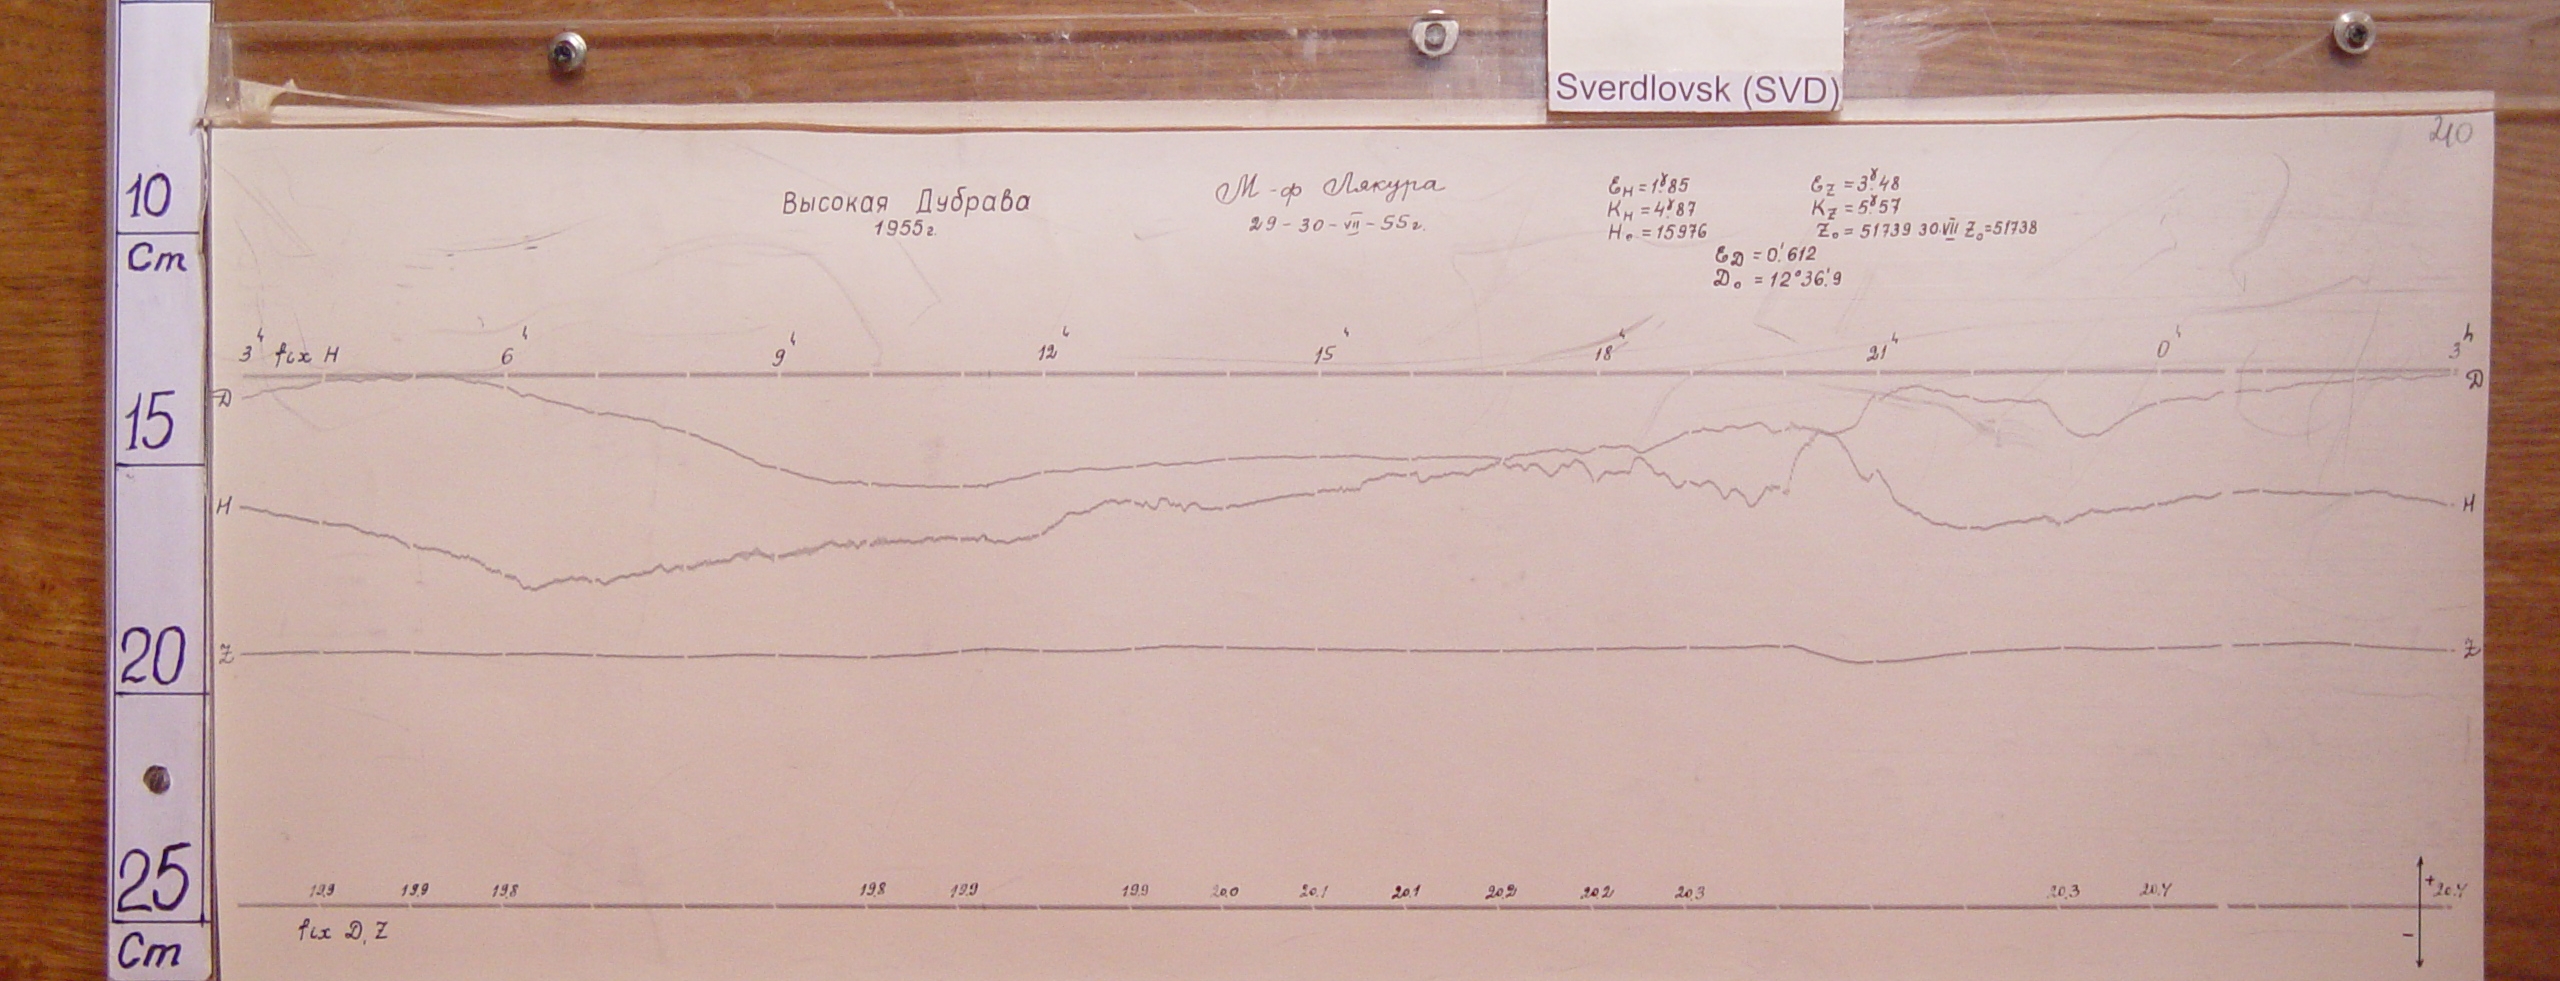 Sverdlovsk (SVD)
10
Cm
15
20
25
Cm
Высокая Дубрава
1955г.
М-ф Лякура
29-30-VII-55г.
ℰH = 1ˠ.85
KH = 4ˠ.87
H₀ = 15976
ℰZ = 3ˠ.48
KZ = 5ˠ.57
Z₀ = 51739 30.VII Z₀=51738
ℰD = 0.′612
D₀ = 12°36.′9
3ʰ fix H 6ʰ 9ʰ 12ʰ 15ʰ 18ʰ 21ʰ 0ʰ 3ʰ
D D
H H
Z Z
19.9 19.9 19.8 19.8 19.9 19.9 20.0 20.1 20.1 20.2 20.2 20.3 20.3 20.4 + 20.4
fix D, Z
-